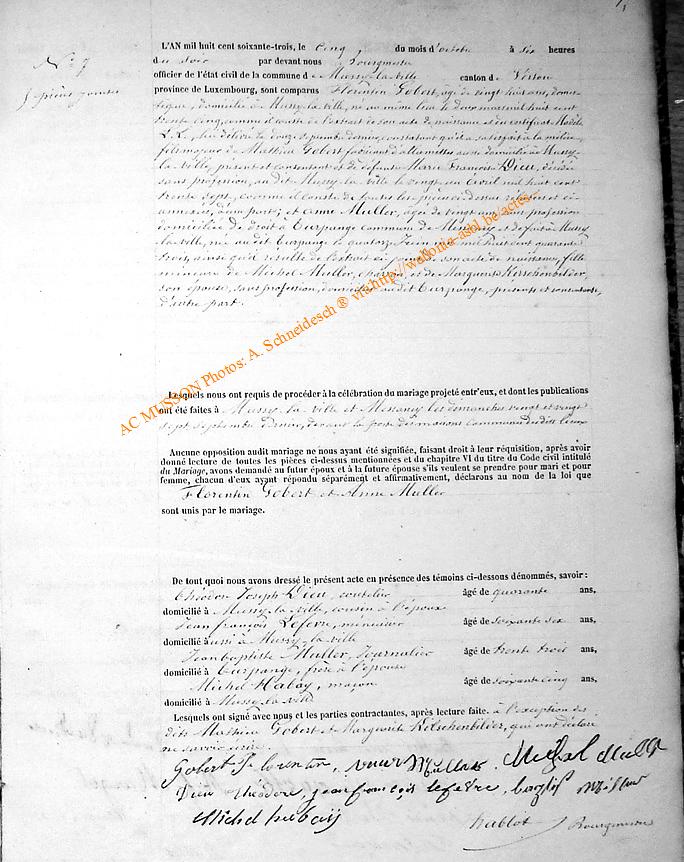 N° 7
L'AN mil huit cent soixante-trois, le cinq du mois d'octobre à six heures
du soir par devant nous Bourgmestre
officier de l'état civil de la commune de Mussy-la-ville canton de Virton
province de Luxembourg, sont comparus Florentin Gobert, agé de vingt huit ans, domes-
tique, domicilié à Mussy-la-ville, né au même lieu le deux mars mil huit cent
trente cinq, comme il conste de l'extrait de son acte de naissance et du certificat Modèle
L.L., lui délivré le douze septembre dernier, constatant qu'il a satisfait à la milice,
fils majeur de Mathieu Gobert fabricant d'allumettes domicilié à Mussy-
la-ville, présent et consentant et de défunte Marie François Dieu, décédée
sans profession, au dit Mussy-la-ville le vingt un avril mil huit cent
trente sept, comme il conste de toutes les pièces ci-dessus
annexées, d'une part; et Anne Muller, agée de vingt ans, sans profession
domiciliée de droit à Turpange commune de Messancy et de fait à Mussy
la-ville, née au dit Turpange le quatorze Juin mil huit cent quarante
trois, ainsi qu'il résulte de l'extrait ci-joint de son acte de naissance, fille
mineure de Michel Muller, et de Marguerite Kerschenbilder,
son épouse, sans profession, domiciliés au dit Turpange, présents et consentants,
d'autre part.
AC MUSSON Photos: A. Schneidesch ® via http://wallonia-asbl.be/actes
Lesquels nous ont requis de procéder à la célébration du mariage projeté entr'eux, et dont les publications
ont été faites à Mussy-la-ville et Messancy les dimanches vingt et vingt
sept septembre dernier, devant la porte des maisons communes des dits lieux
Aucune opposition audit mariage ne nous ayant été signifiée, faisant droit à leur réquisition, après avoir
donné lecture de toutes les pièces ci-dessus mentionnées et du chapitre VI du titre du Code civil intitulé
du Mariage, avons demandé au futur époux et à la future épouse s'ils veulent se prendre pour mari et pour
femme, chacun d'eux ayant répondu séparément et affirmativement, déclarons au nom de la loi que
Florentin Gobert et Anne Muller
sont unis par le mariage.
De tout quoi nous avons dressé le présent acte en présence des témoins ci-dessous dénommés, savoir :
Théodore Joseph Dieu, coutelier âgé de quarante ans,
domicilié à Mussy-la-ville, cousin à l'époux
Jean François Lefevre, menuisier âgé de soixante six ans,
domicilié aussi à Mussy-la-ville
Jean baptiste Muller, Journalier âgé de trente trois ans,
domicilié à Turpange, frère à l'épouse
Michel Habay, maçon âgé de soixante cinq ans,
domicilié à Mussy-la-ville
Lesquels ont signé avec nous et les parties contractantes, après lecture faite. à l'exception des
dits Mathieu Gobert et Marguerite Kerschenbilder, qui ont déclaré
ne savoir écrire.
Gobert Florentin, Muller Michel Muller
Dieu théodore, jean françois lefevre, Miller
Michel hubais
hablot Bourgmestre